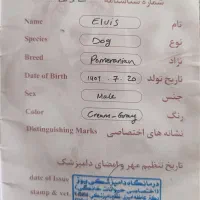 شماره شناسنامه
Name Elvis نام
Species Dog نوع
Breed Pomeranian نژاد
Date of Birth 1909 . 7 . 20 تاریخ تولد
Sex Male جنس
Color Cream-Gray رنگ
Distinguishing Marks نشانه های اختصاصی
تاریخ تنظیم مهر و امضای دامپزشک
date of Issue
stamp & vet.